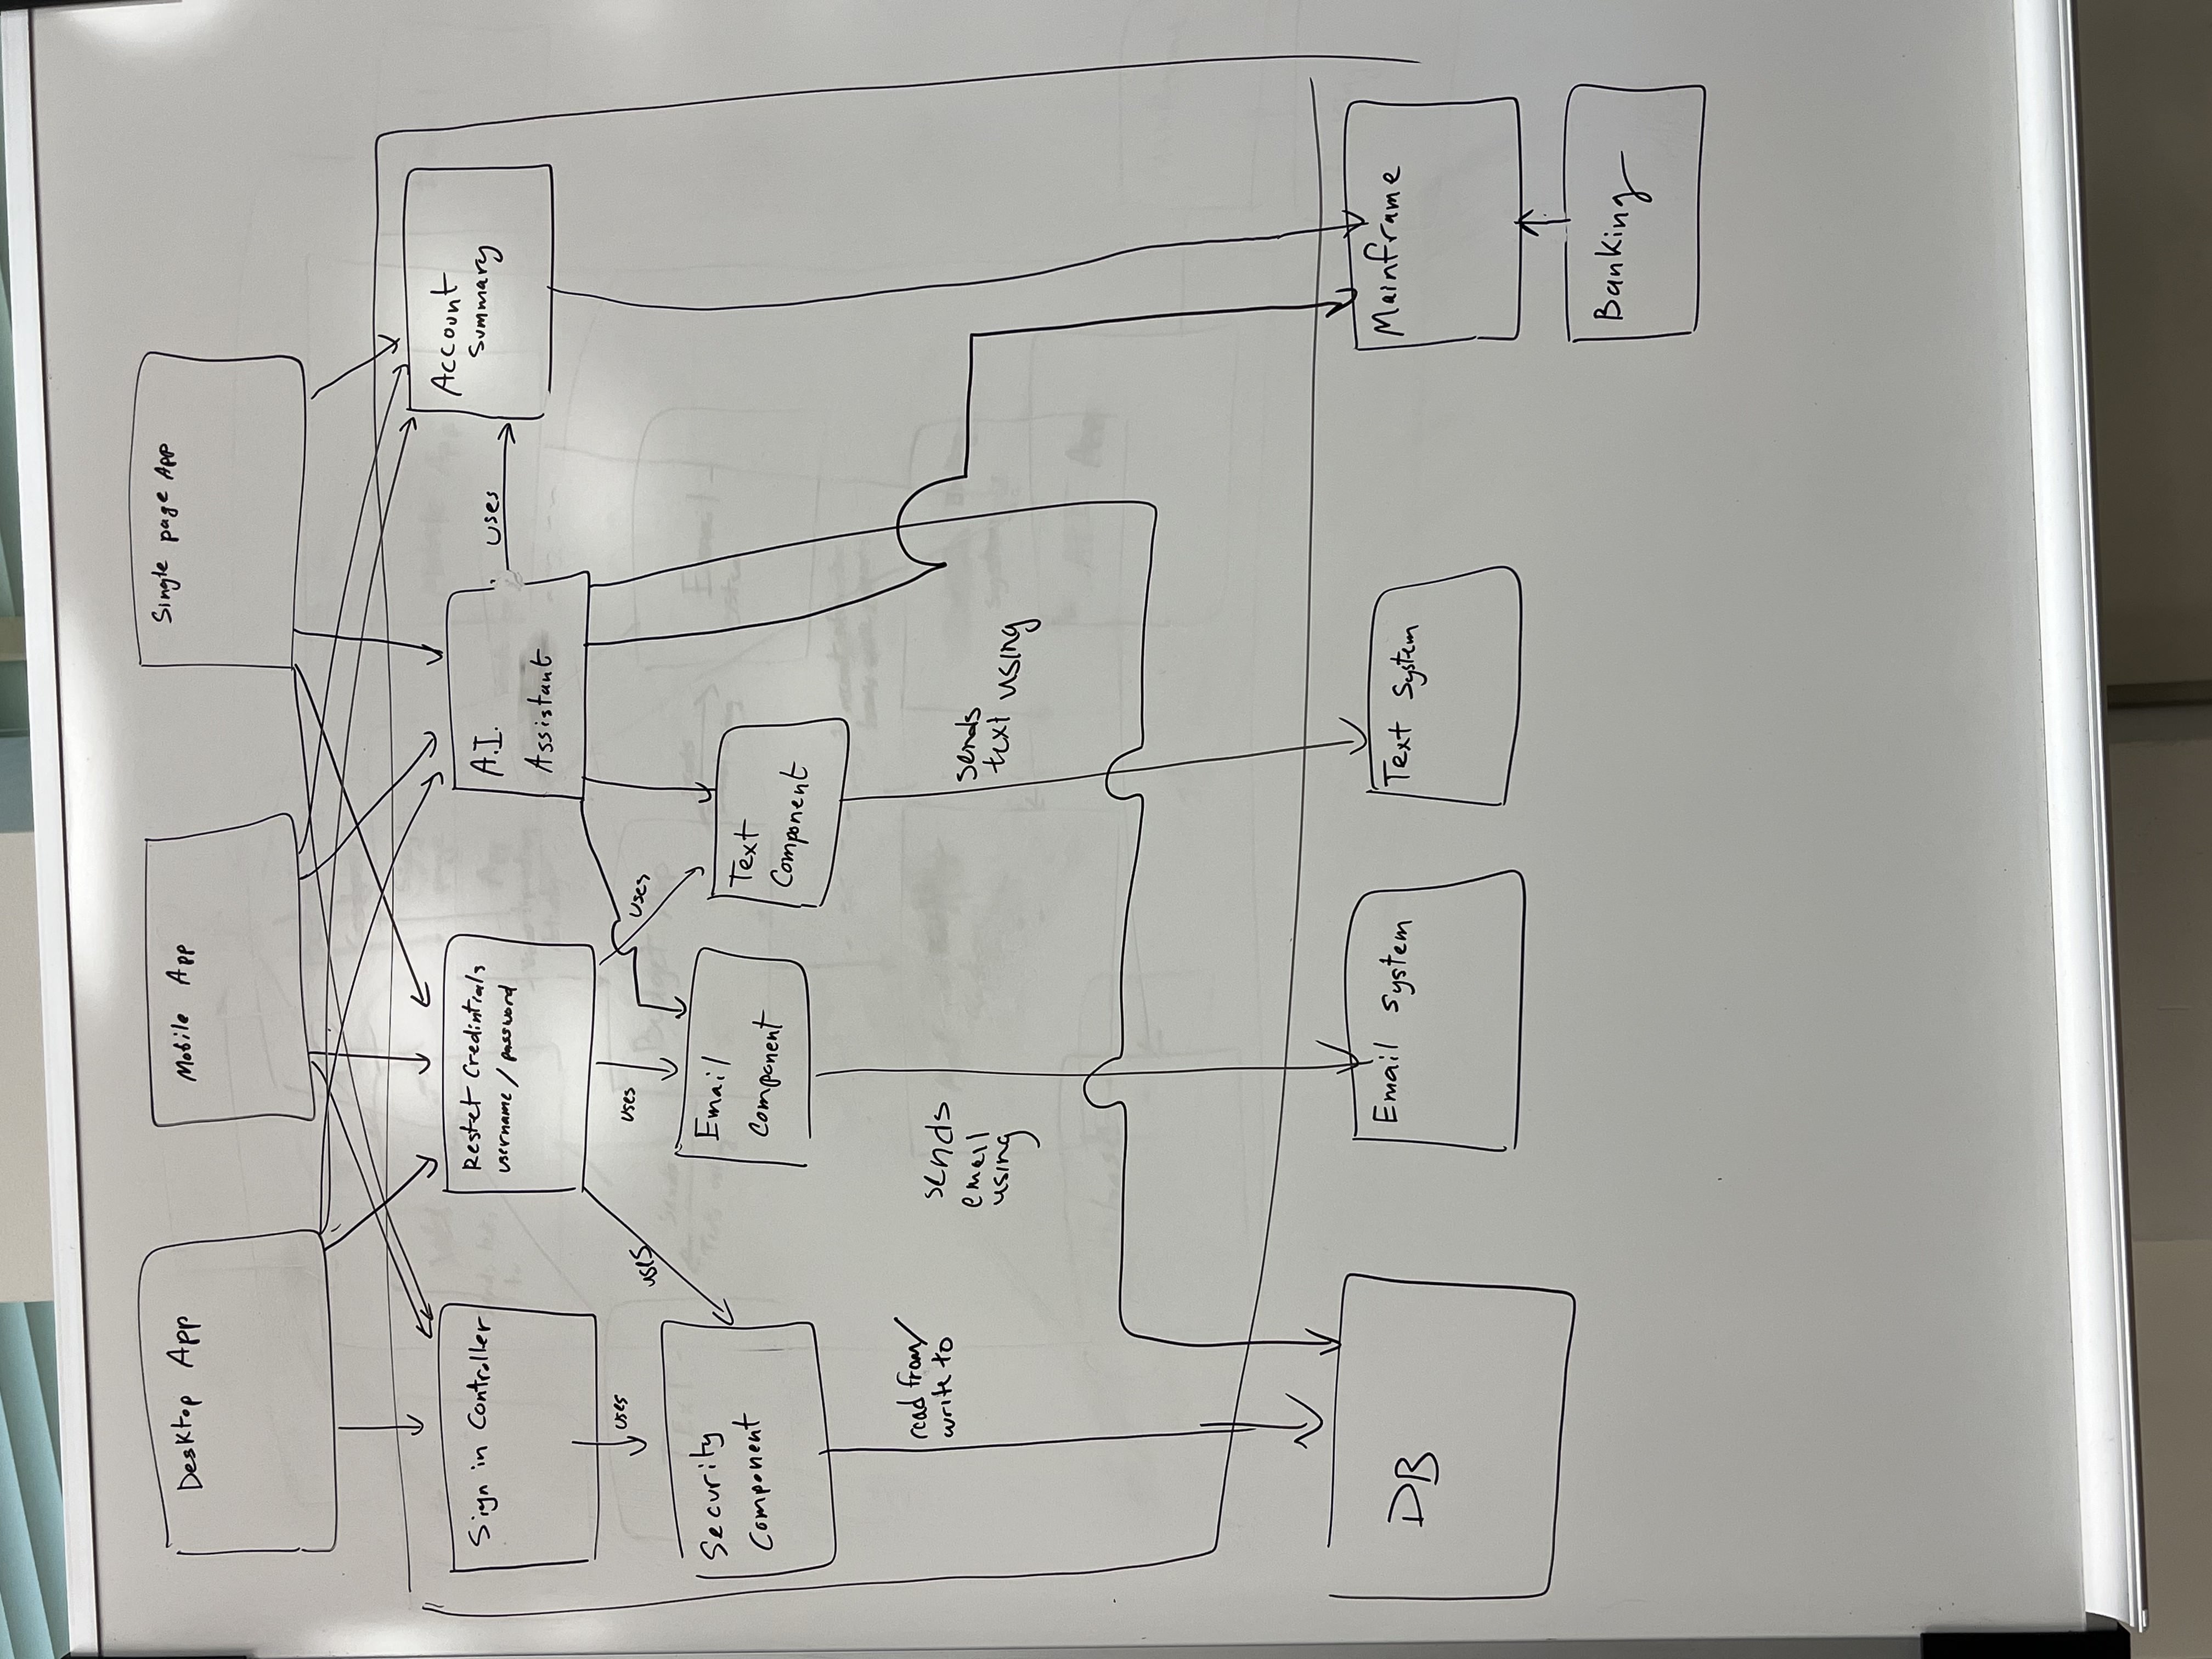 Desktop App
Mobile App
Single page App
Sign in Controller
Restet Credintials
username / password
A.I.
Assistant
uses
Account
Summary
uses
uses
uses
uses
Security
Component
Email
Component
Text
Component
read from/
write to
sends
email
using
sends
text using
DB
Email system
Text System
Mainframe
Banking